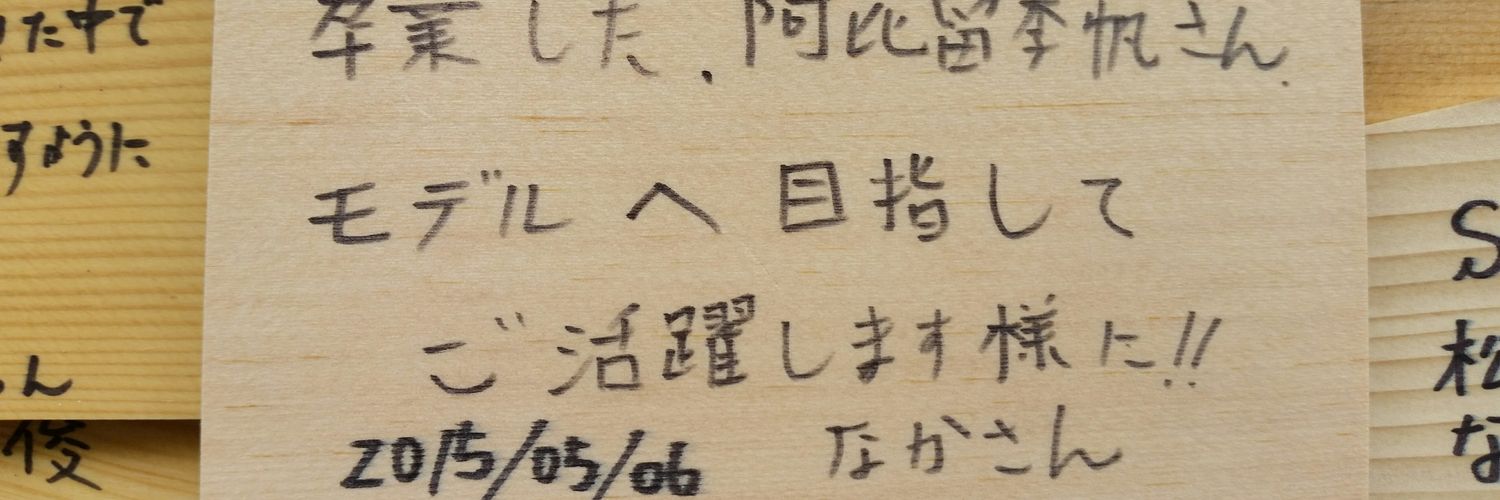 卒業した、阿比留李帆さん、
モデルへ目指して
ご活躍します様に!!
2015/05/06 なかさん
た中で
すように
ん
俊
S
松
な